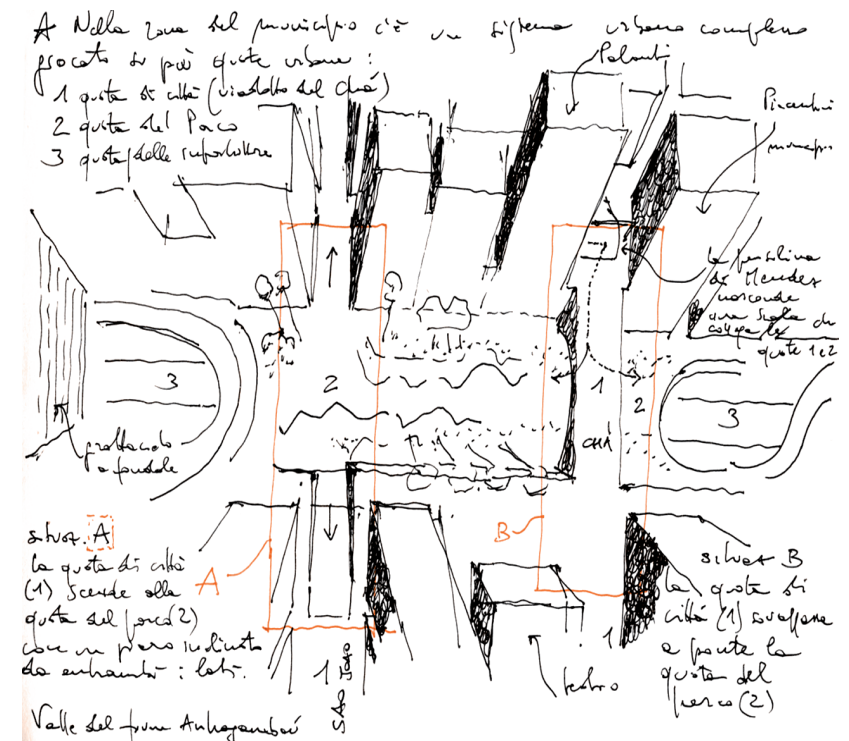 A Nella zona del municipio c'è un sistema urbano complesso
giocato su più quote urbane:
1 quota di città (viadotto del Chá)
2 quota del Parco
3 quota delle infrastrutture
Palanti
Piacentini
municipio
la pensilina
di Mendes
nasconde
una scala che
collega le
quote 1 e 2
3
2
1
2
3
CHÁ
grattacielo
a pendole
A
B
situaz. A
la quota di città
(1) scende alla
quota del parco (2)
con un piano inclinato
da entrambi i lati.
1
SÃO JOÃO
teatro
1
situaz B
la quota di
città (1) scavalca
a ponte la
quota del
parco (2)
Valle del fiume Anhangabaú